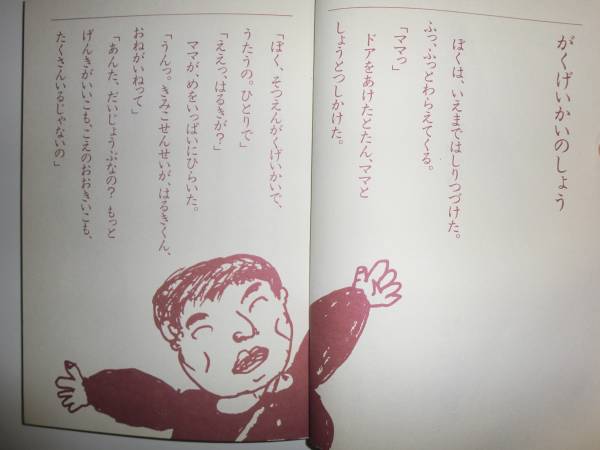 がくげいかいのしょう
ぼくは、いえまではしりつづけた。
ふっ、ふっとわらえてくる。
「ママっ」
ドアをあけたとたん、ママと
しょうとつしかけた。
「ぼく、そつえんがくげいかいで、
うたうの。ひとりで」
「ええっ、はるきが？」
ママが、めをいっぱいにひらいた。
「うんっ。きみこせんせいが、はるきくん、
おねがいねって」
「あんた、だいじょうぶなの？ もっと
げんきがいいこも、こえのおおきいこも、
たくさんいるじゃないの」